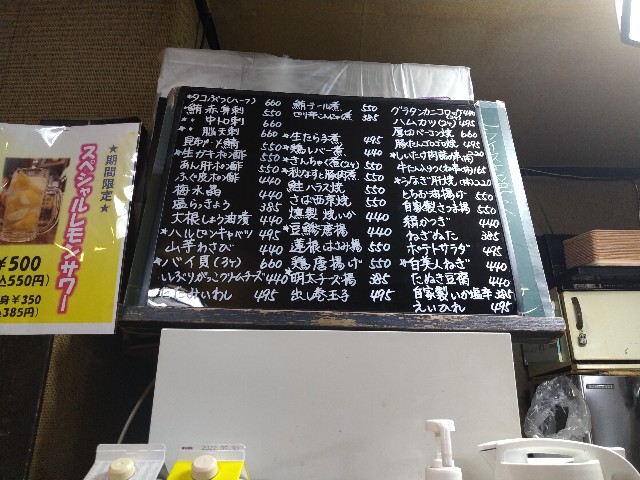 ★期間限定★
スペシャルレモンサワー
¥500
込550円)
身¥350
385円)
*タコぶつ(ハーフ) 660
鮪赤身刺 550
〃 中トロ刺 660
〃 脳天刺 660
昆布〆鯖 550
*生ガキ木の酢 550
あん肝木の酢 550
ふぐ皮木の酢 440
梅水晶 440
塩らっきょう 385
大根しょう油漬 440
*ハルピンキャベツ 495
山芋わさび 440
*バイ貝(3ヶ) 660
いぶりがっこクリームチーズ 440
たたみいわし 495
550
385
*生たら子煮 495
*鶏レバー煮 440
*きんちゃく煮(2ヶ) 550
550
鮭ハラス焼 550
さば西京焼 550
燻製焼いか 440
*豆鯵唐揚 440
蓮根はさみ揚 550
鶏唐揚げ 550
*明太チーズ揚 385
出し巻玉子 495
グラタンカニコロッケ 440
ハムカツ(2ヶ) 495
厚切ベーコン焼 660
豚たんゴロゴロ焼 550
165
*うなぎ肝焼(1本) 220
とちお油揚げ 550
自家製さつま揚 550
絹かつぎ 440
ねぎぬた 385
ポテトサラダ 495
*白美人ねぎ 440
たぬき豆腐 440
自家製いか塩辛 385
えいひれ 495